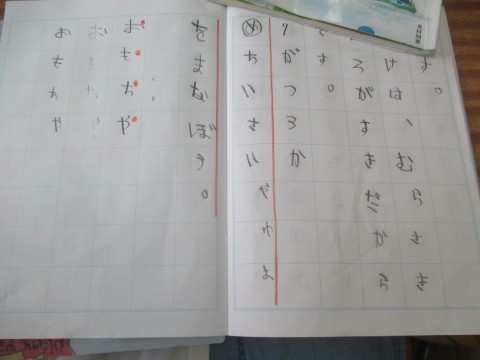 す。
けは、むらさき
ろがすきだから
です。
7がつ3か
めちいさいゃゅょ
をまなぼう。
おもちゃ
おもちゃ
おもちゃ